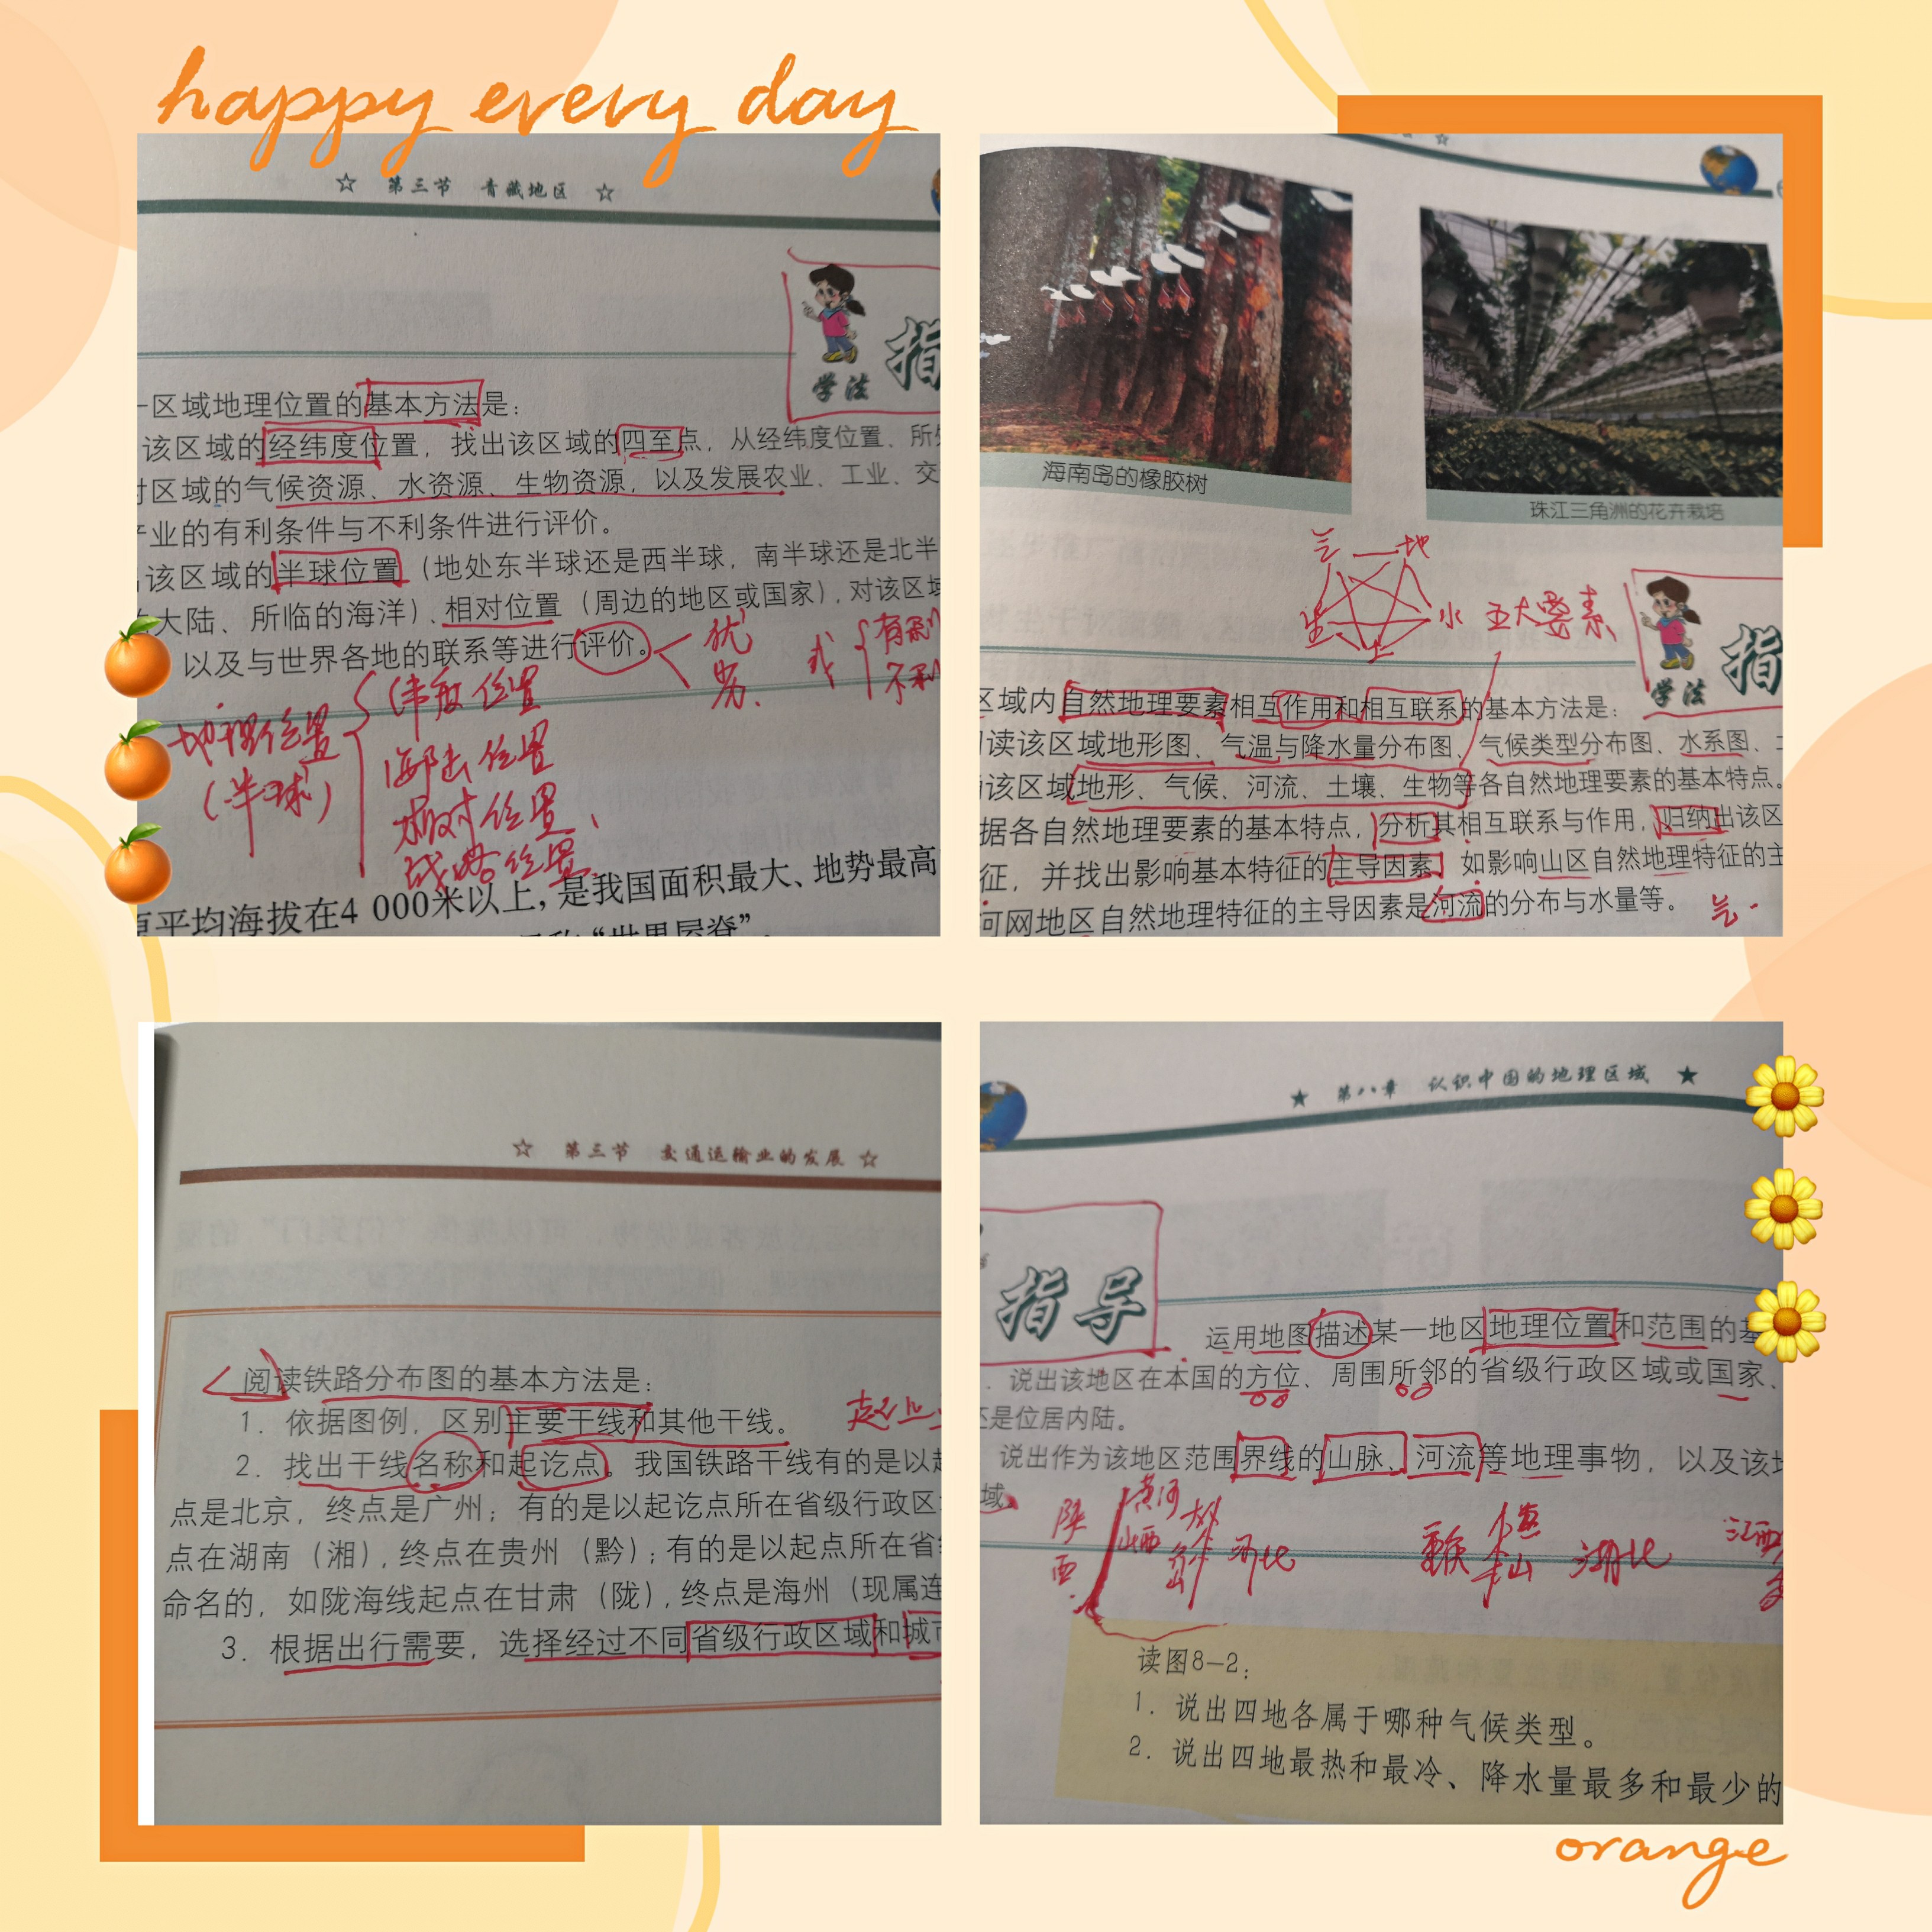 happy every day
☆ 第三节 青藏地区 ☆
学法
指
一区域地理位置的基本方法是：
该区域的经纬度位置，找出该区域的四至点，从经纬度位置、所
对区域的气候资源、水资源、生物资源，以及发展农业、工业、交
产业的有利条件与不利条件进行评价。
该区域的半球位置（地处东半球还是西半球，南半球还是北半
大陆、所临的海洋）、相对位置（周边的地区或国家），对该区域
以及与世界各地的联系等进行评价。
优
劣
或
有利
不利
地理位置
(半球)
纬度位置
海陆位置
相对位置
战略位置
平均海拔在4 000米以上，是我国面积最大、地势最高
“世界屋脊”。
海南岛的橡胶树
珠江三角洲的花卉栽培
气 地
生 水 五大要素
土
学法
指
区域内自然地理要素相互作用和相互联系的基本方法是：
读该区域地形图、气温与降水量分布图、气候类型分布图、水系图、
该区域地形、气候、河流、土壤、生物等各自然地理要素的基本特点。
据各自然地理要素的基本特点，分析其相互联系与作用，归纳出该区
征，并找出影响基本特征的主导因素。如影响山区自然地理特征的主
河网地区自然地理特征的主导因素是河流的分布与水量等。
气
☆ 第三节 交通运输业的发展 ☆
阅读铁路分布图的基本方法是：
1. 依据图例，区别主要干线和其他干线。
2. 找出干线名称和起讫点。我国铁路干线有的是以起
点是北京，终点是广州；有的是以起讫点所在省级行政区
点在湖南（湘），终点在贵州（黔）；有的是以起点所在省
命名的，如陇海线起点在甘肃（陇），终点是海州（现属连
3. 根据出行需要，选择经过不同省级行政区域和城市
★ 第八章 认识中国的地理区域 ★
指导
运用地图描述某一地区地理位置和范围的基
说出该地区在本国的方位、周围所邻的省级行政区域或国家、
还是位居内陆。
说出作为该地区范围界线的山脉、河流等地理事物，以及该地
域
陕西
黄河
山西
河北
湖北
江西
读图8-2：
1. 说出四地各属于哪种气候类型。
2. 说出四地最热和最冷、降水量最多和最少的
orange